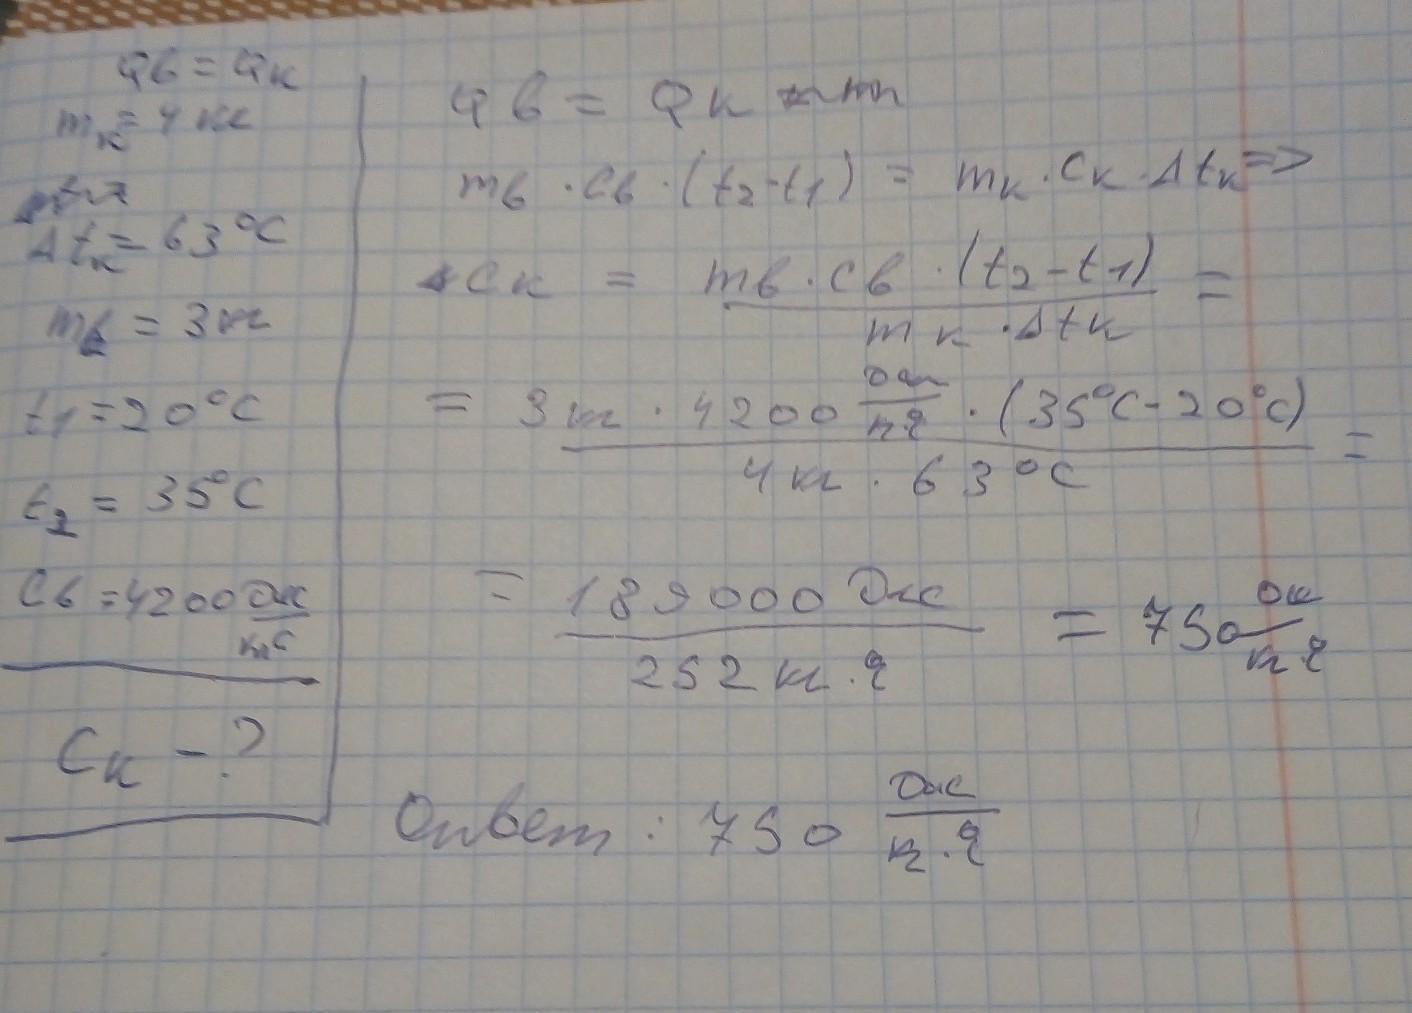 Qв = Qк
mк = 4 кг
Δtк = 63°C
mв = 3 кг
t1 = 20°C
t2 = 35°C
Cв = 4200 Дж/кг°C
Cк - ?
Qв = Qк
mв · Cв · (t2 - t1) = mк · Cк · Δtк =>
Cк = mв · Cв · (t2 - t1) / mк · Δtк =
= 3 кг · 4200 Дж/кг°C · (35°C - 20°C) / 4 кг · 63°C =
= 189000 Дж / 252 кг · °C = 750 Дж/кг °C
Ответ: 750 Дж/кг · °C